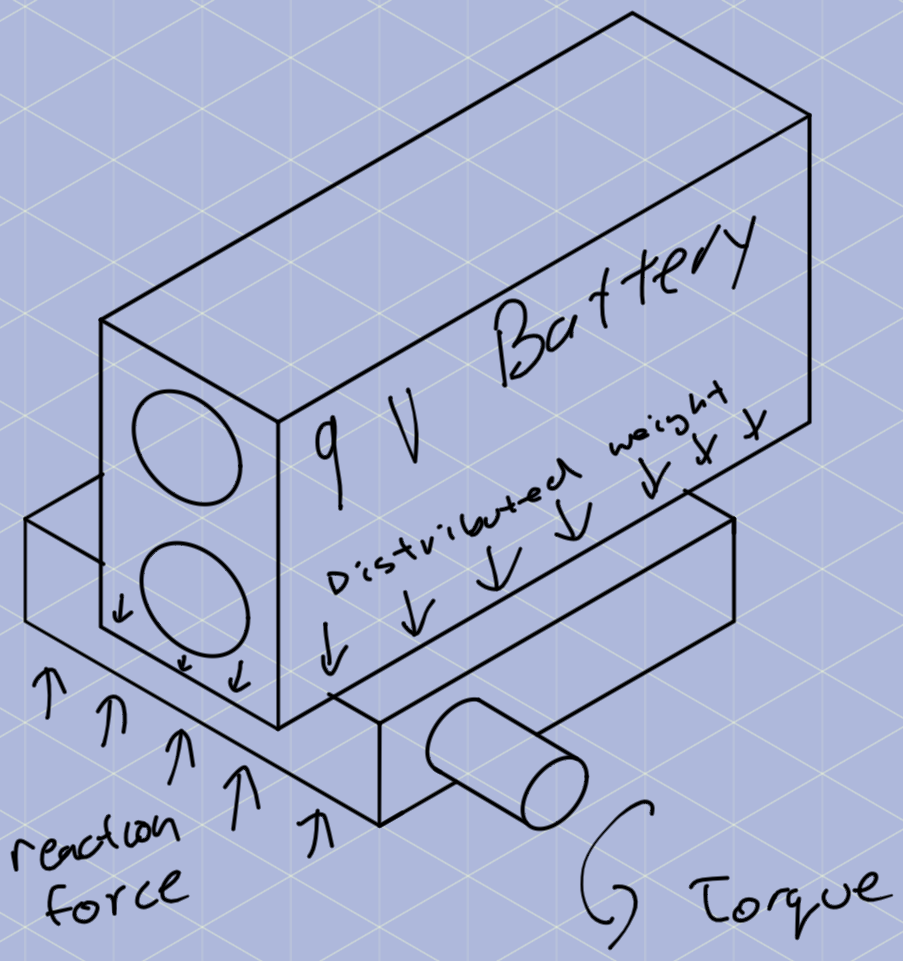 9 V Battery
Distributed weight
reaction
force
Torque